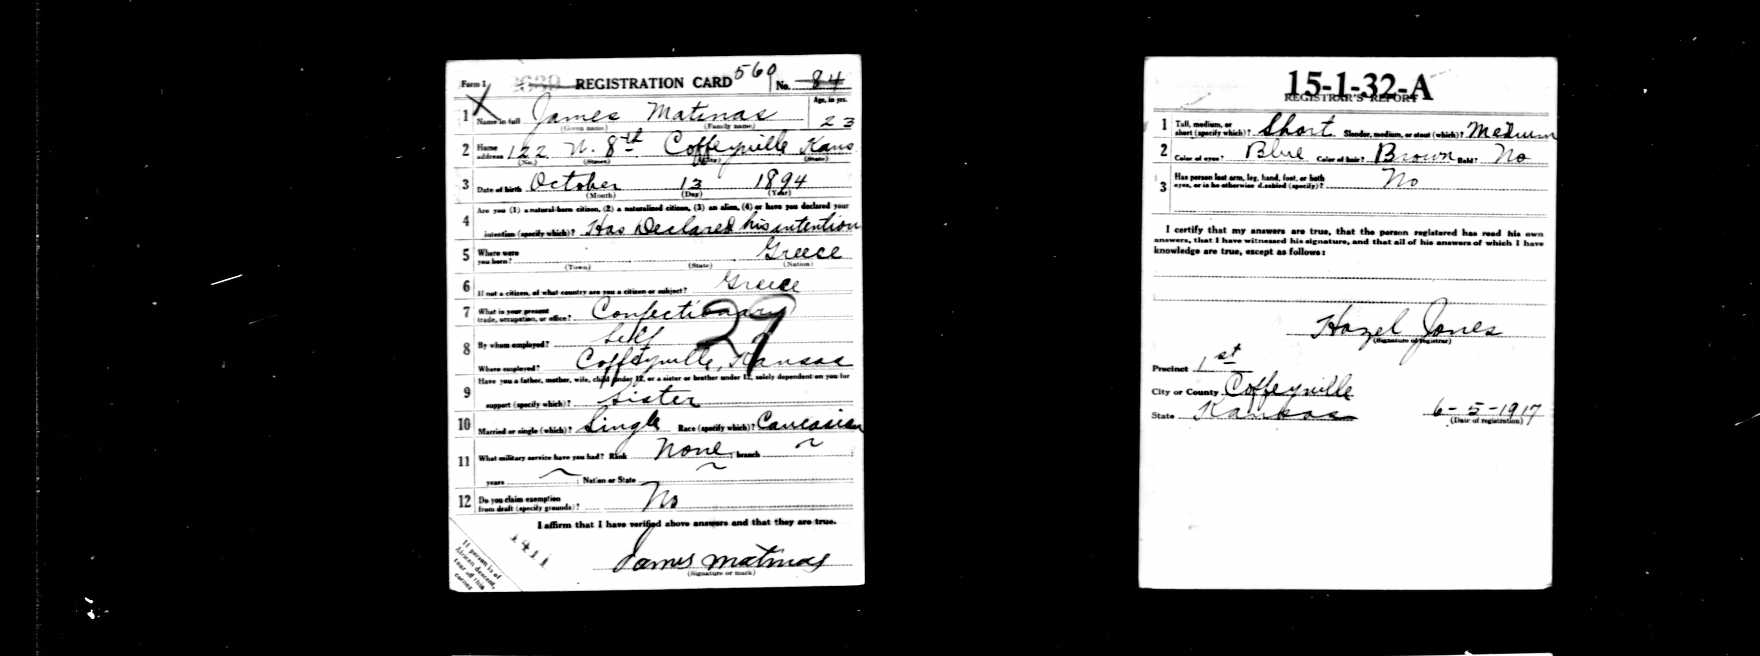 Form 1 REGISTRATION CARD 569 No. 84
1 Name in full James Matinas Age, in yrs. 23
(Given name) (Family name)
2 Home address 122 N. 8th Coffeyville Kans
(No.) (Street) (City) (State)
3 Date of birth October 13 1894
(Month) (Day) (Year)
4 Are you (1) a natural-born citizen, (2) a naturalized citizen, (3) an alien, (4) or have you declared your
intention (specify which)? Has Declared his intention
5 Where were you born? Greece
(Town) (State) (Nation)
6 If not a citizen, of what country are you a citizen or subject? Greece
7 What is your present trade, occupation, or office? Confectionary
29
8 By whom employed? Self
Where employed? Coffeyville, Kansas
9 Have you a father, mother, wife, child under 12, or a sister or brother under 12, solely dependent on you for
support (specify which)? Sister
10 Married or single (which)? Single Race (specify which)? Caucasian
11 What military service have you had? Rank None ; branch ~ ;
years ~ ; Nation or State ~
12 Do you claim exemption from draft (specify grounds)? No
I affirm that I have verified above answers and that they are true.
James Matinas
(Signature or mark)
If person is of
African descent,
tear off this
corner
15-1-32-A
REGISTRAR'S REPORT
1 Tall, medium, or short (specify which)? Short Slender, medium, or stout (which)? Medium
2 Color of eyes? Blue Color of hair? Brown Bald? No
3 Has person lost arm, leg, hand, foot, or both eyes, or is he otherwise disabled (specify)? No
I certify that my answers are true, that the person registered has read his own
answers, that I have witnessed his signature, and that all of his answers of which I have
knowledge are true, except as follows:
Hazel Jones
(Signature of registrar)
Precinct 1st
City or County Coffeyville
State Kansas 6-5-1917
(Date of registration)